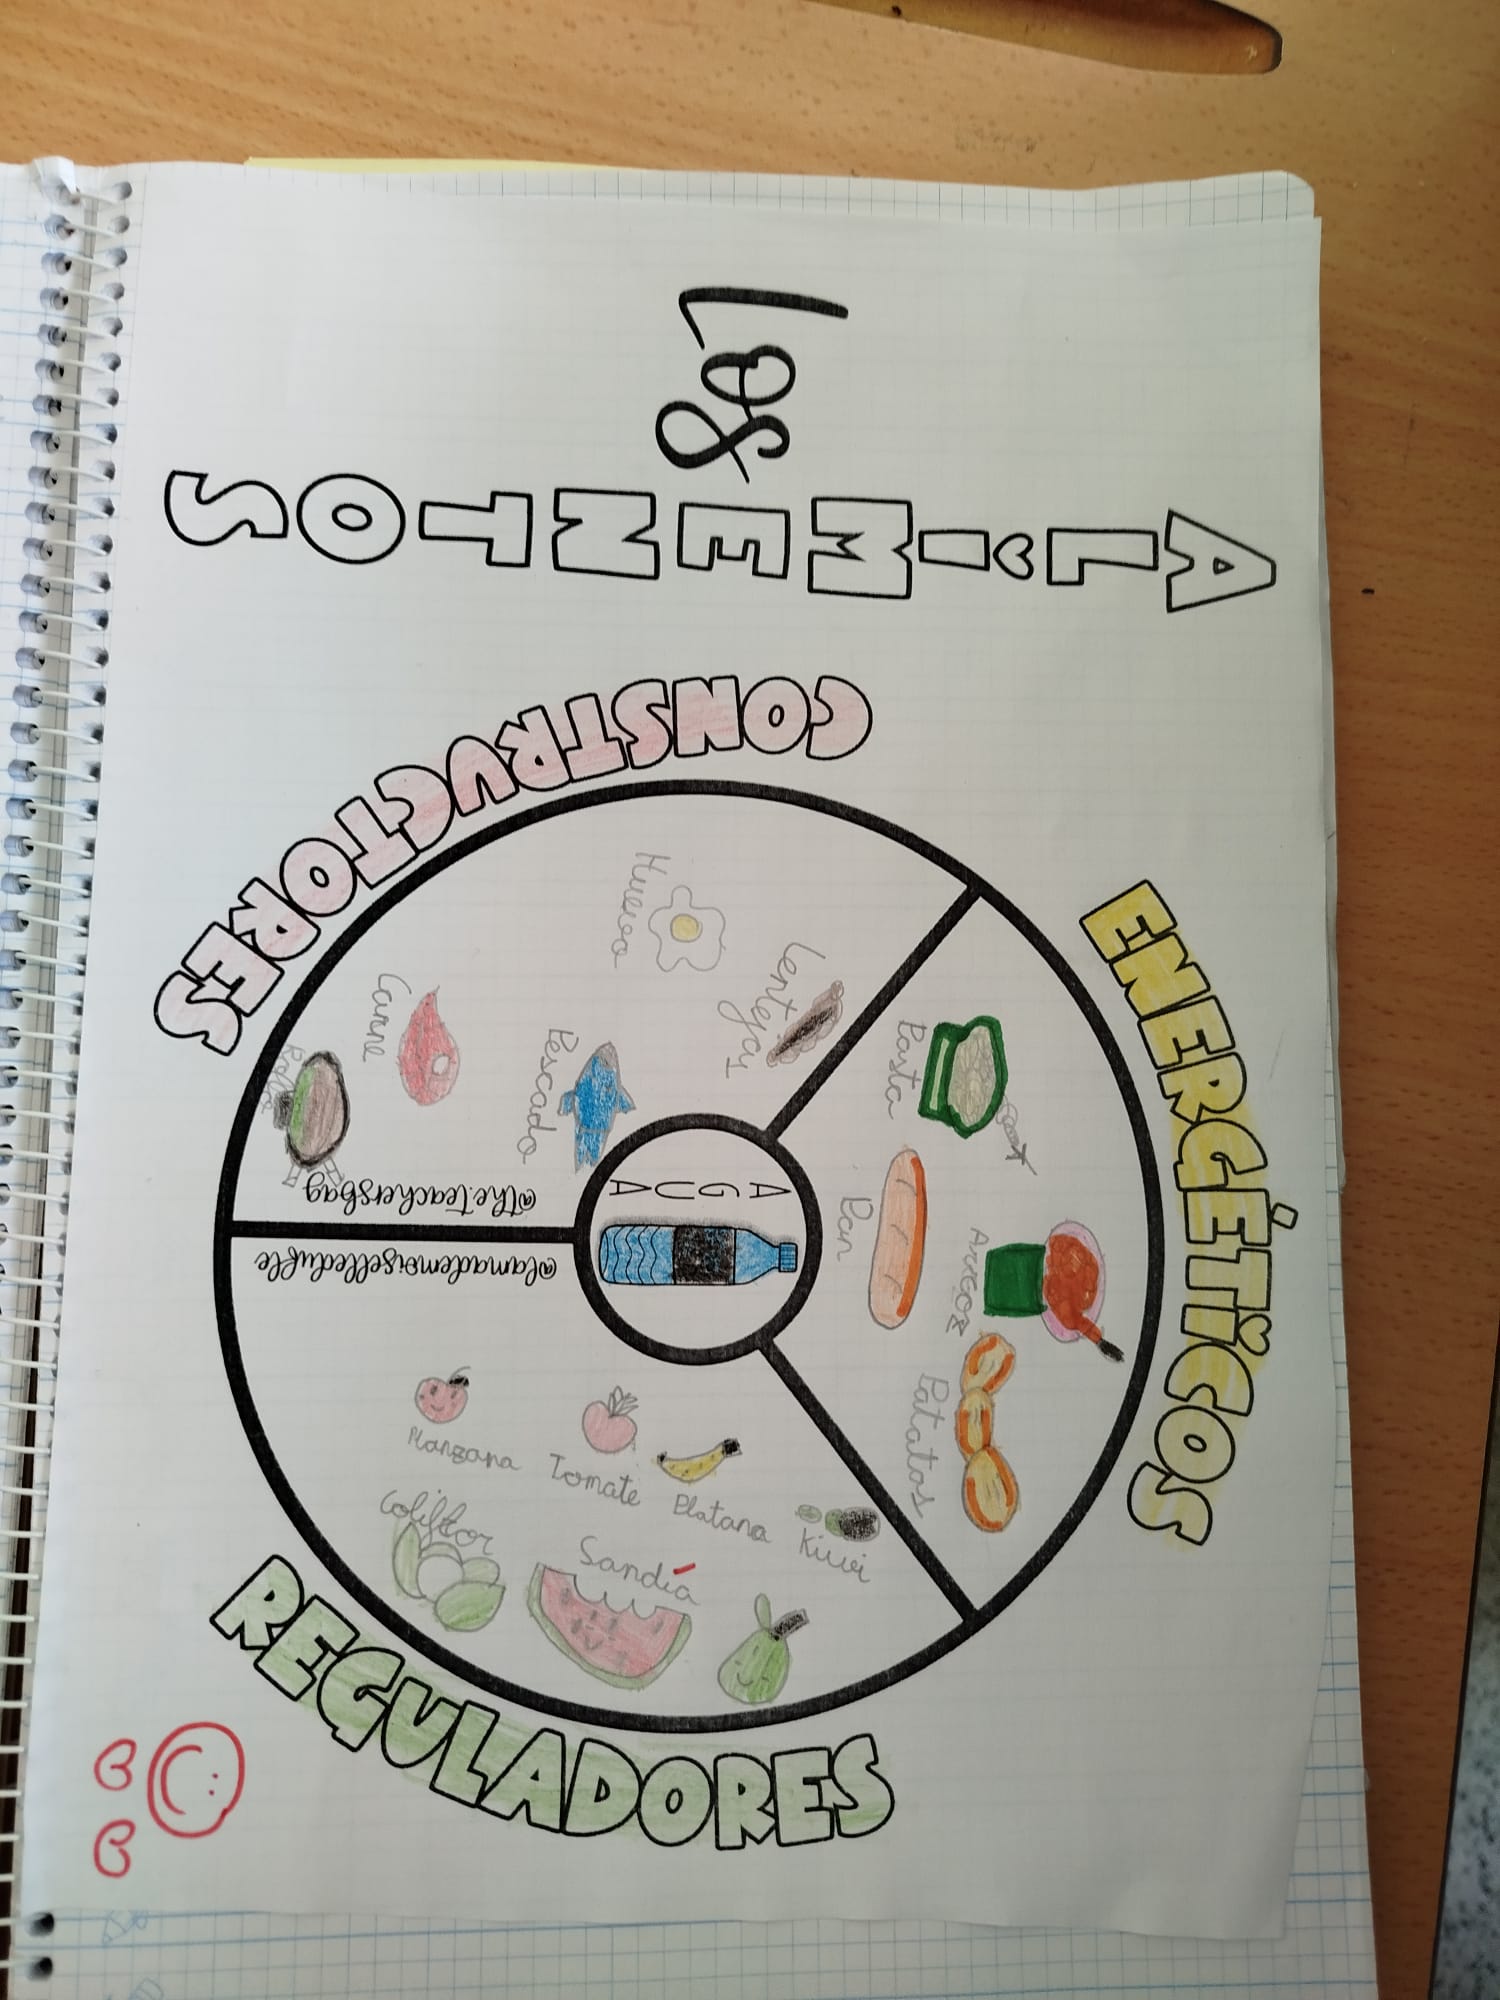 los
ALiMENTOS
CONSTRUCTORES
Huevo
Lentejas
Carne
Pescado
Pollo
@the.teachersbag
ENERGÉTiCOS
Pasta
Pan
Arroz
Patatas
AGUA
@lamademoiselleduble
Manzana
Tomate
Platano
Kiwi
Coliflor
Sandía
REGULADORES